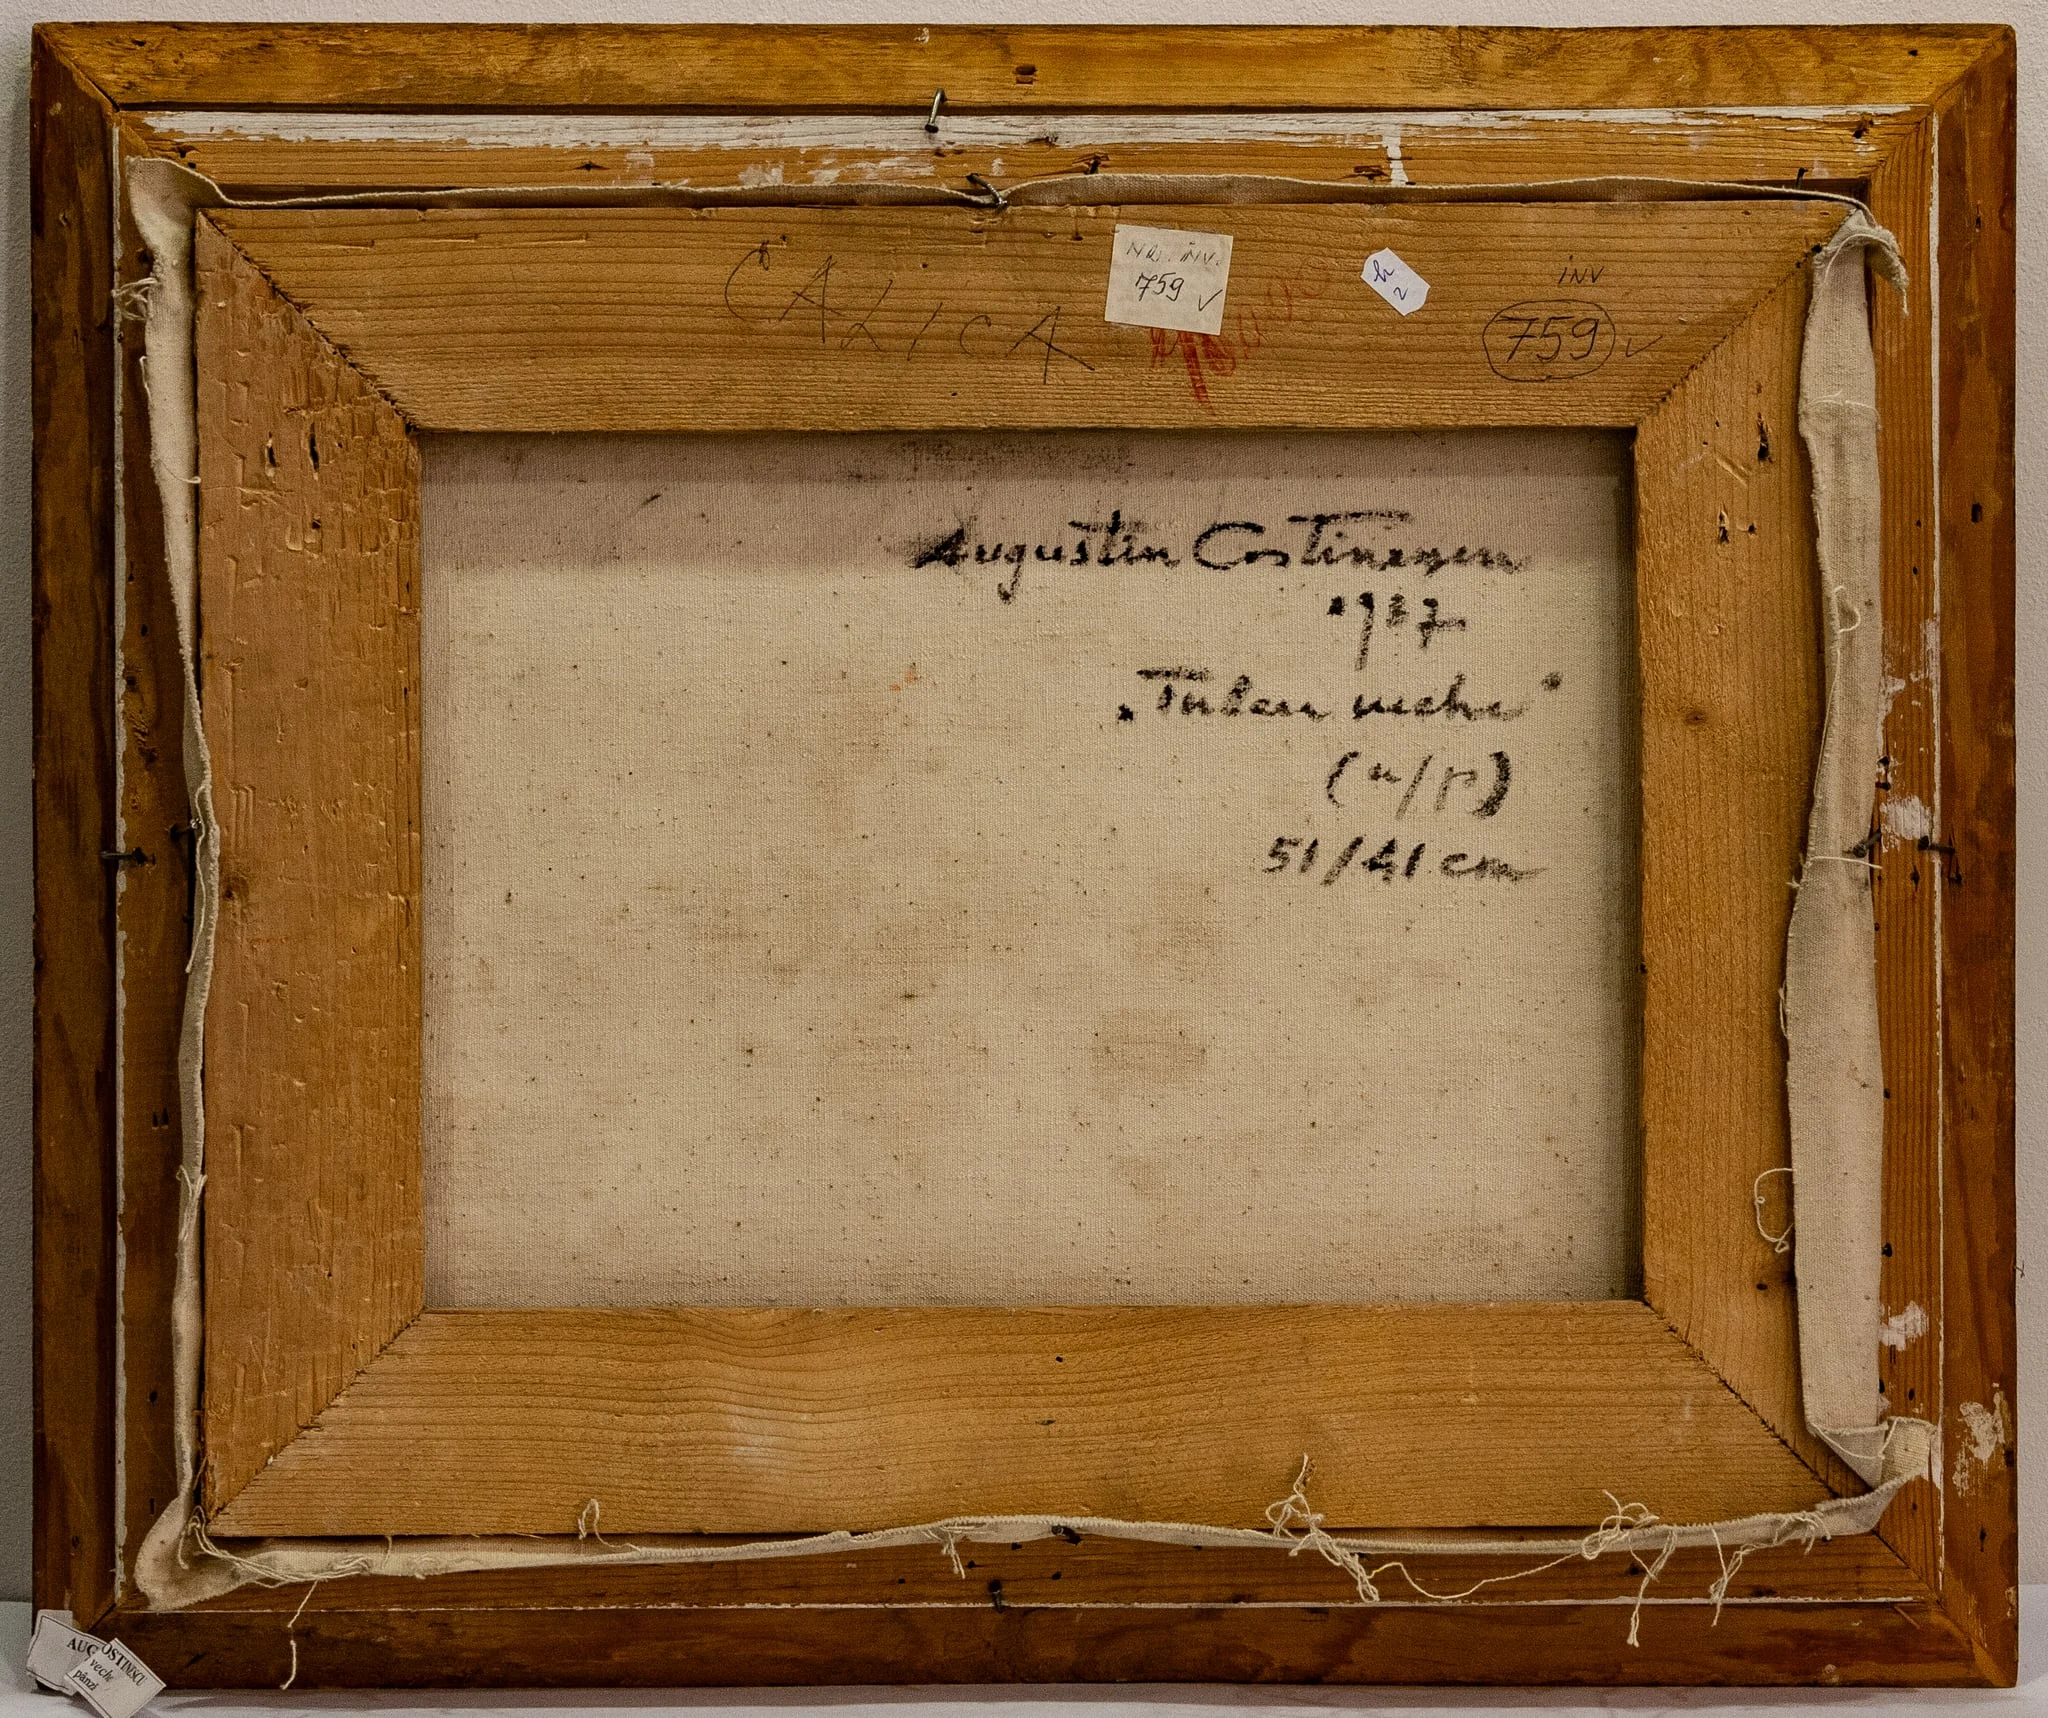 CALICA
NR. INV.
759 ✓
h
2
INV
759 ✓
Augustin Costinescu
1987
„Tulcea veche"
(u/p)
51/41 cm
AUG OSTINESCU
veche
pânză